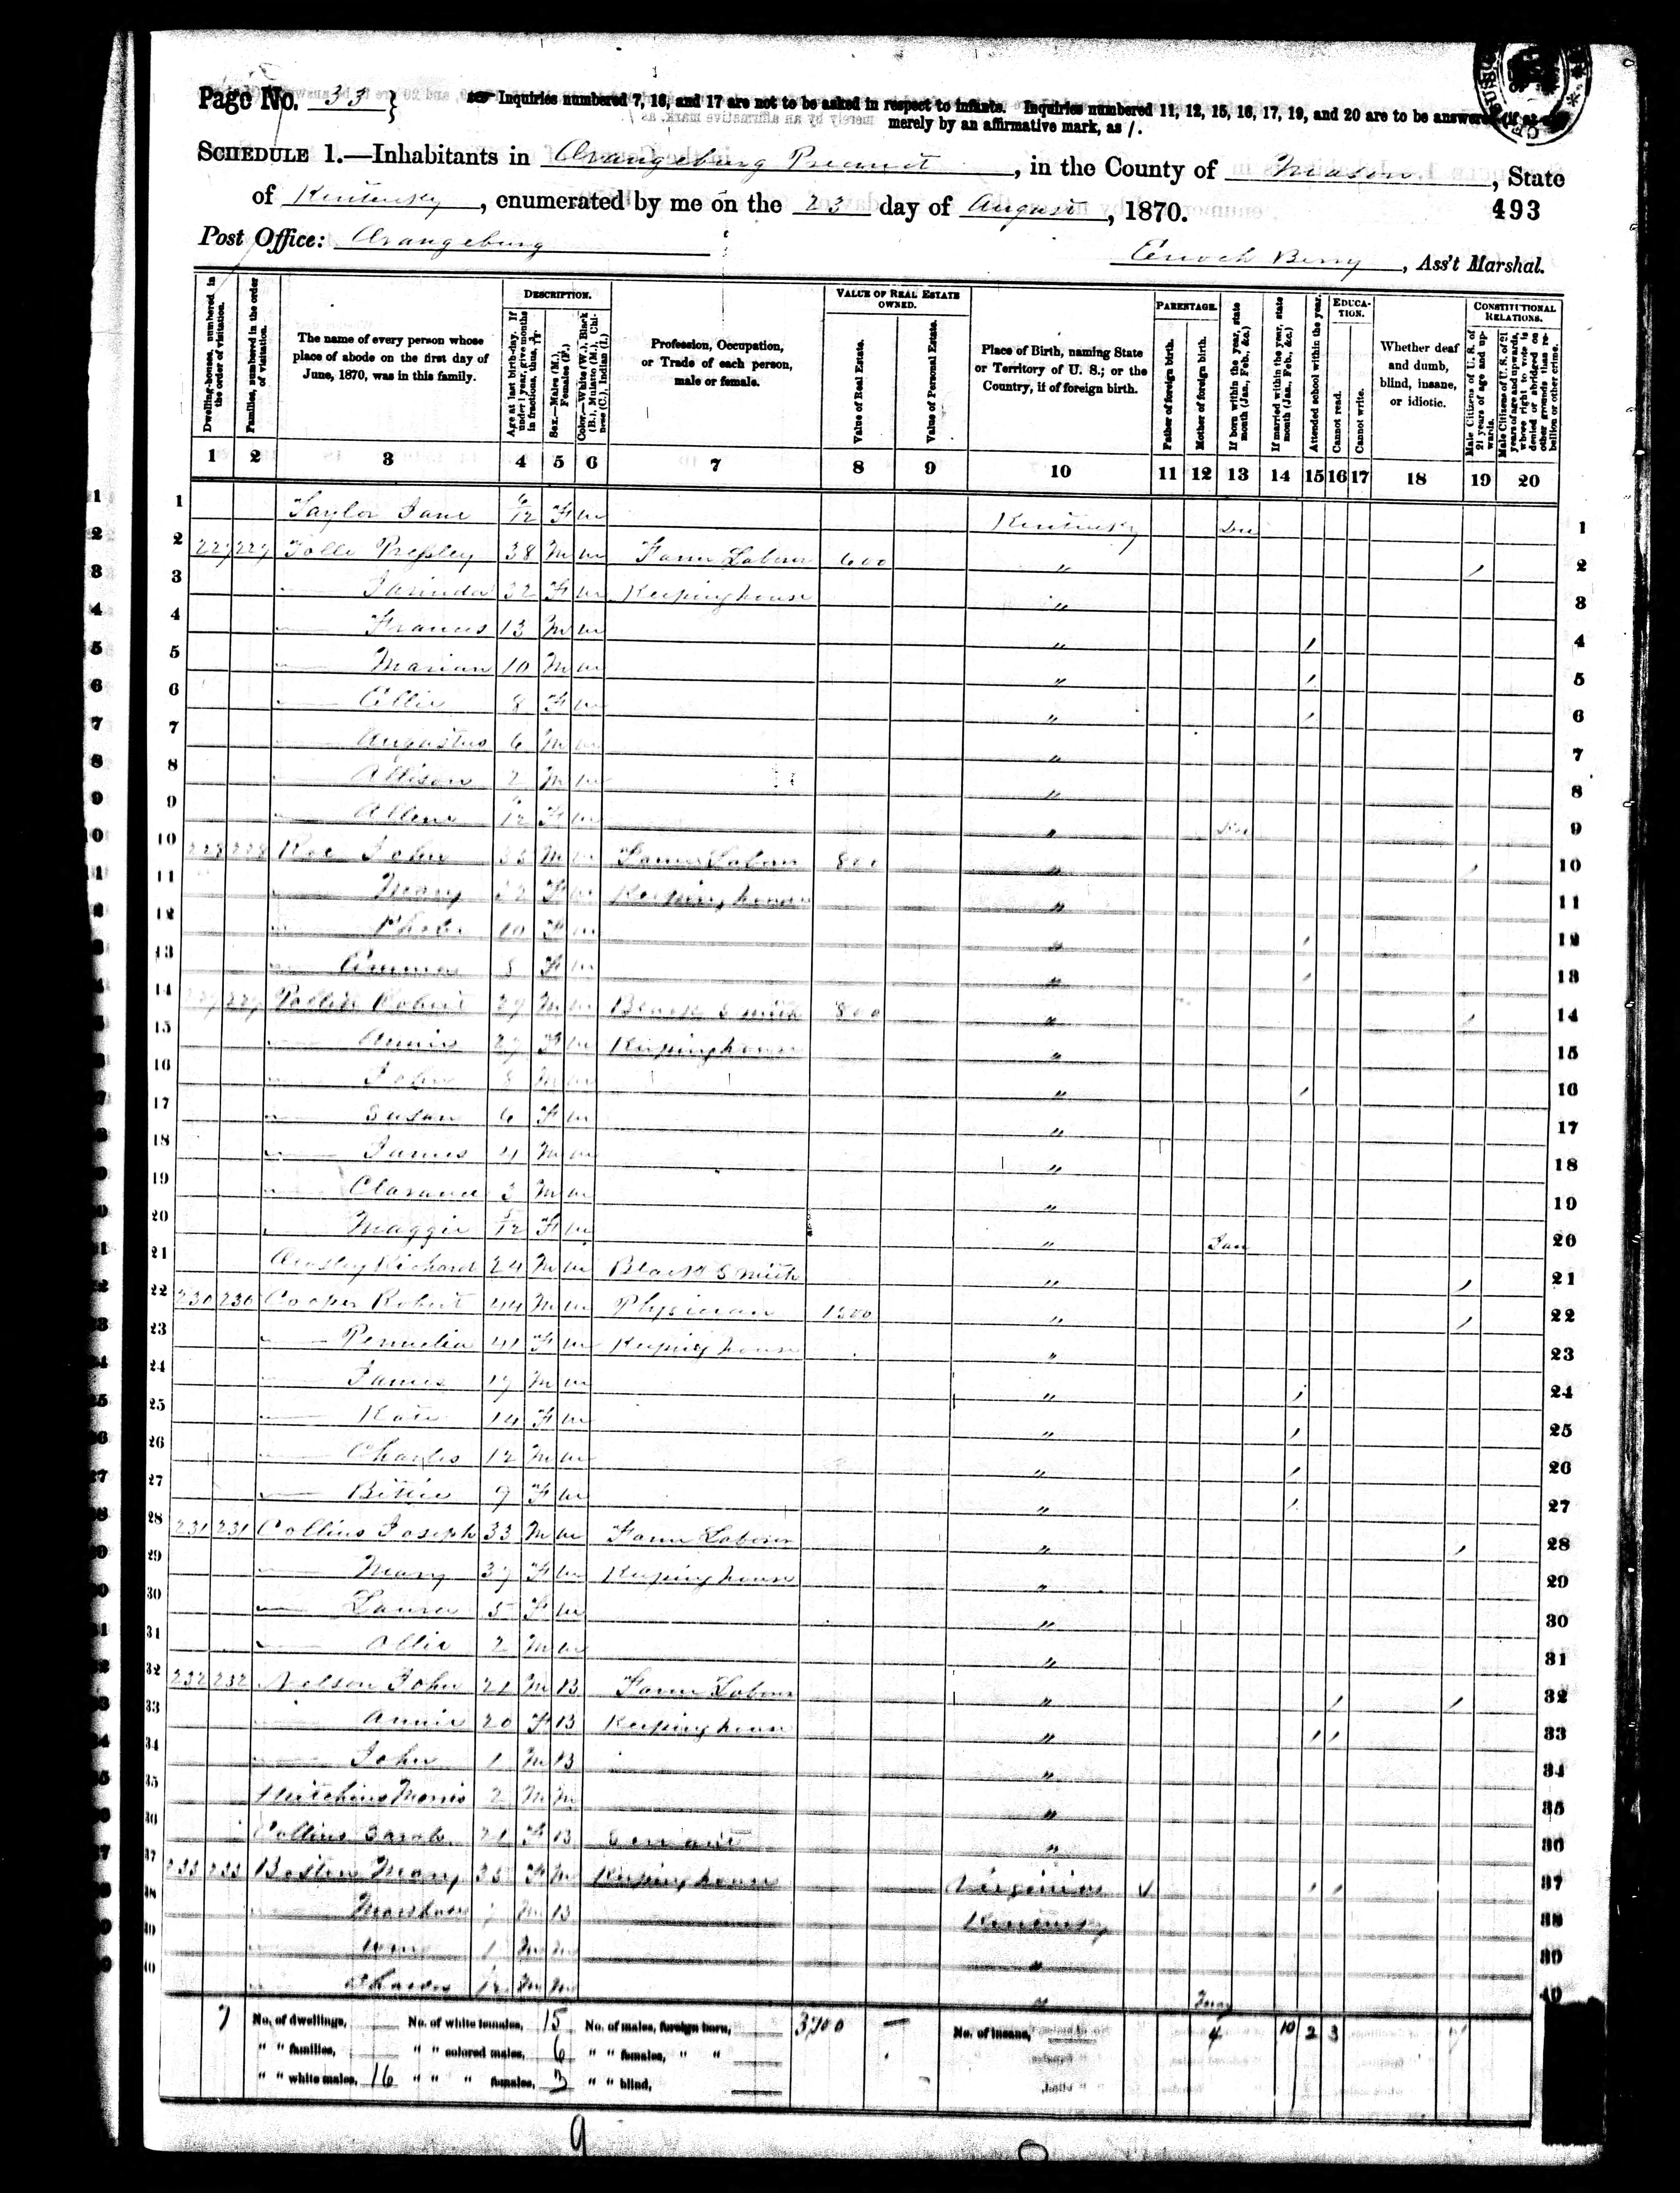 Page No. 33 } Inquiries numbered 7, 16, and 17 are not to be asked in respect to infants. Inquiries numbered 11, 12, 15, 16, 17, 19, and 20 are to be answered (if at all)
merely by an affirmative mark, as /.
SCHEDULE 1.—Inhabitants in Orangeburg Precinct, in the County of Mason, State
of Kentucky, enumerated by me on the 23 day of August, 1870.
493
Post Office: Orangeburg
Enoch Berry, Ass't Marshal.
Dwelling-houses, numbered in the order of visitation.
Families, numbered in the order of visitation.
The name of every person whose place of abode on the first day of June, 1870, was in this family.
DESCRIPTION.
Age at last birth-day. If under 1 year, give months in fractions, thus,
Sex.—Males (M.), Females (F.)
Color.—White (W.), Black (B.), Mulatto (M.), Chinese (C.), Indian (I.)
Profession, Occupation, or Trade of each person, male or female.
VALUE OF REAL ESTATE OWNED.
Value of Real Estate.
Value of Personal Estate.
Place of Birth, naming State or Territory of U. S.; or the Country, if of foreign birth.
PARENTAGE.
Father of foreign birth.
Mother of foreign birth.
If born within the year, state month (Jan., Feb., &c.)
If married within the year, state month (Jan., Feb., &c.)
Attended school within the year.
EDUCATION.
Cannot read.
Cannot write.
Whether deaf and dumb, blind, insane, or idiotic.
CONSTITUTIONAL RELATIONS.
Male Citizens of U. S. of 21 years of age and upwards.
Male Citizens of U. S. of 21 years of age and upwards, whose right to vote is denied or abridged on other grounds than rebellion or other crime.
1 2 3 4 5 6 7 8 9 10 11 12 13 14 15 16 17 18 19 20
1 Taylor Jane 6/12 F W Kentucky Dec 1
2 227 227 Tolle Pressley 38 M W Farm Laborer 600 " / 2
3 — 32 F W Keeping house " 3
4 — Francis 13 M W " / 4
5 — Marian 10 M W " / 5
6 — Ollie 8 F W " / 6
7 — Augustus 6 M W " 7
8 — Allison 2 M W " 8
9 — /12 F W " Dec 9
10 228 228 Roe John M W Farm Laborer 800 " / 10
11 — Mary 32 F W Keeping house " 11
12 — Phebe 10 F W " / 12
13 — Emma 8 F W " / 13
14 229 229 Robert 29 M W Black Smith 800 " / 14
15 — Annie 27 F W Keeping house " 15
16 — John 8 M W " / 16
17 — Susan 6 F W " 17
18 — James 4 M W " 18
19 — Clarance 3 M W " 19
20 — Maggie 5/12 F W " Jan 20
21 Richard 24 M W Black Smith " / 21
22 230 230 Cooper Robert 44 M W Physician 1500 " / 22
23 — Permelia 41 F W Keeping house " 23
24 — James 17 M W " / 24
25 — Kate 14 F W " / 25
26 — Charles 12 M W " / 26
27 — Bettie 9 F W " / 27
28 231 231 Collins Joseph 33 M W Farm Laborer " / 28
29 — Mary 37 F W Keeping house " 29
30 — Laura 5 F W " 30
31 — Ollie 2 M W " 31
32 232 232 Nelson John 21 M B Farm Laborer " / / 32
33 — Annie 20 F B Keeping house " / / 33
34 — John 1 M B " 34
35 Hutchins Morris 2 M M " 35
36 Collins Sarah 21 F B Servant " 36
37 233 233 Boston Mary 35 F M Keeping house Virginia / / 37
38 — M B Kentucky 38
39 — Wm 1 M M " 39
40 — Charles /12 M M " May 40
7 No. of dwellings, No. of white females, 15 No. of males, foreign born, 3700 — No. of insane, 4 10 2 3 7
" " families, " " colored males, 6 " " females, " "
" " white males, 16 " " " females, 3 " " blind,
9